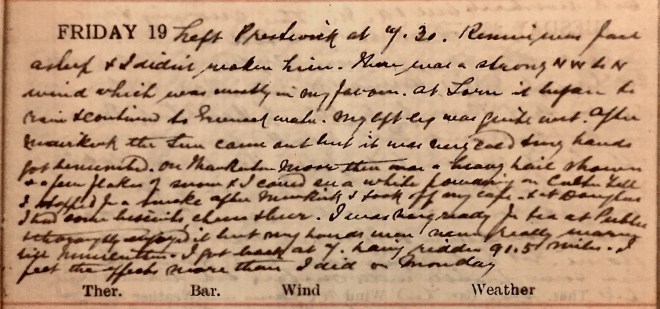 FRIDAY 19 Left Prestwick at 7.30. Rennie was fast
asleep & I didn't waken him. There was a strong NW to N
wind which was mostly in my favour. At Sorn it began to
rain & continued to. My left leg was quite wet. After
Muirkirk the sun came out but it was very cold & my hands
got benumbed. On moor there was a heavy hail shower
& a few flakes of snow & I could see a white powdering on Fell
I stopped for a smoke after Muirkirk & took off my cape & at Douglas
I had some biscuits cheese & beer. I was very ready for tea at Peebles
& thoroughly enjoyed it but my hands were never really warm
till. I got back at 7. having ridden 91.5 miles. I
feel the effects more than I did on Monday
Ther. Bar. Wind Weather